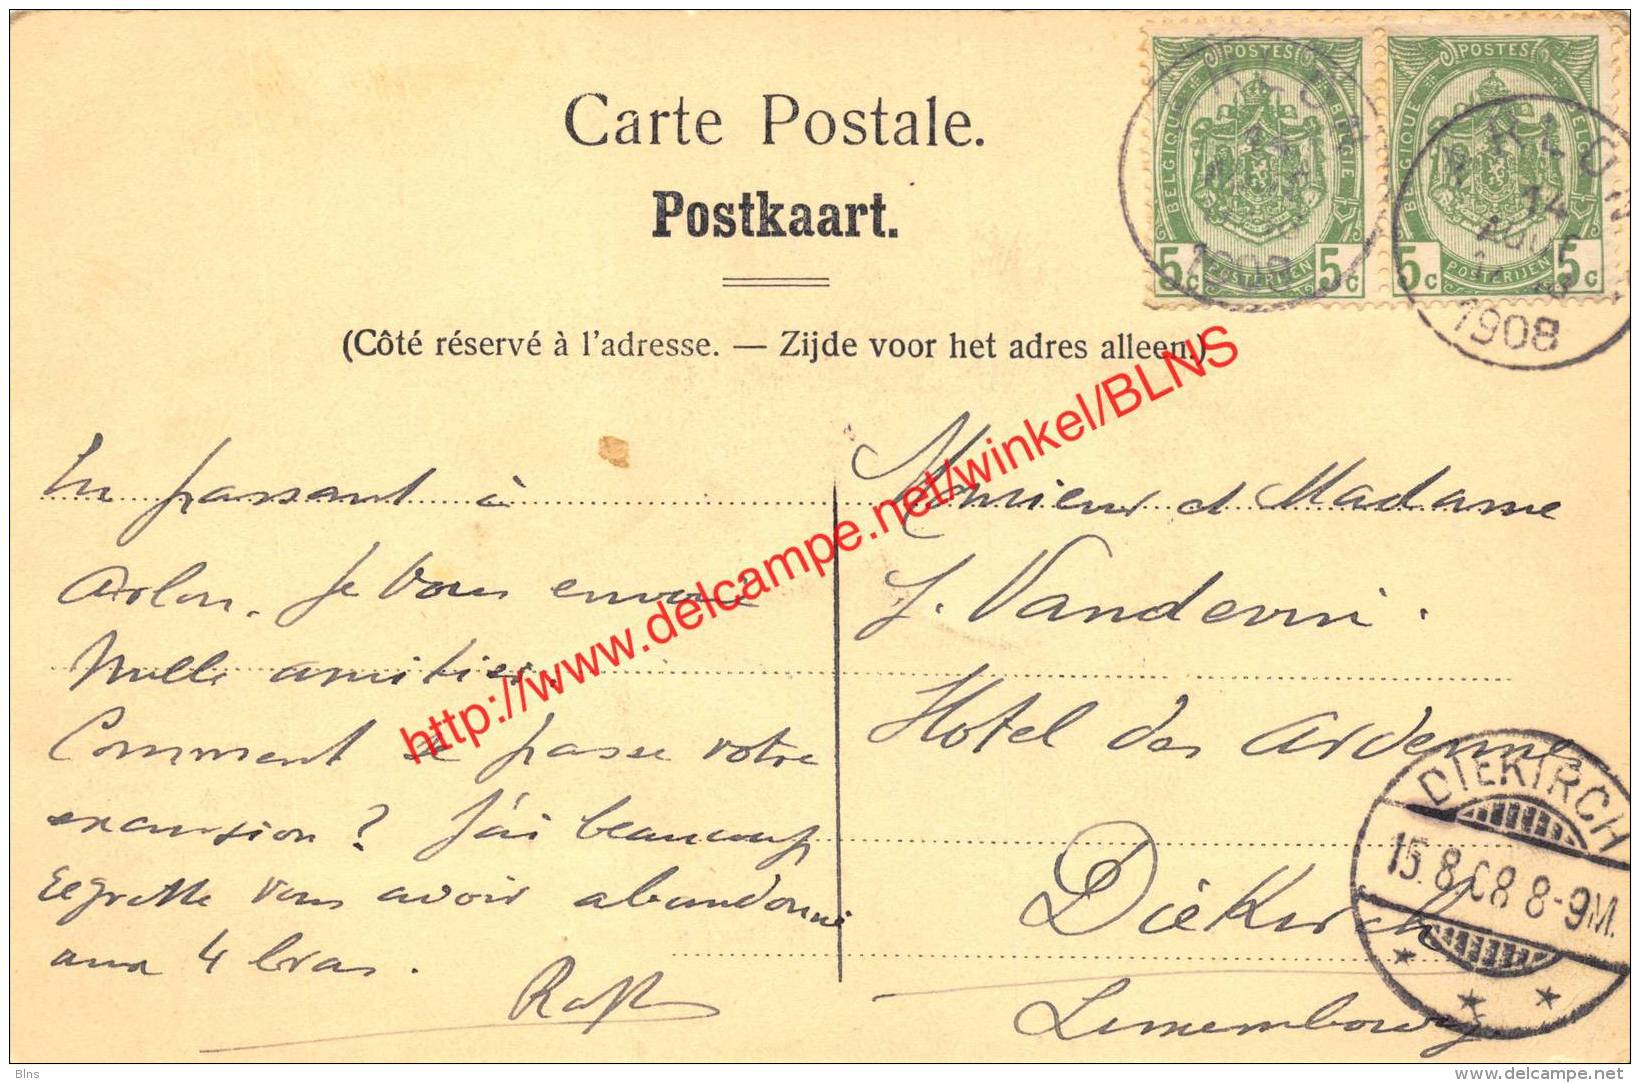 Carte Postale.
Postkaart.
(Côté réservé à l'adresse. — Zijde voor het adres alleen.)
POSTES
BELGIQUE
BELGIE
5c POSTERIJEN 5c
POSTES
BELGIQUE
BELGIE
5c POSTERIJEN 5c
ARLON
14
AOUT
1908
ARLON
14
AOUT
1908
En passant à
Arlon. Je vous envoie
Mille amitiés.
Comment se passe votre
excursion? J'ai beaucoup
regretté vous avoir abandonné
aux 4 bras.
Monsieur et Madame
J.
Hotel des Ardennes
Diekirch
Luxembourg
DIEKIRCH
15.8.08 8-9M.
http://www.delcampe.net/winkel/BLNS
Blns
www.delcampe.net